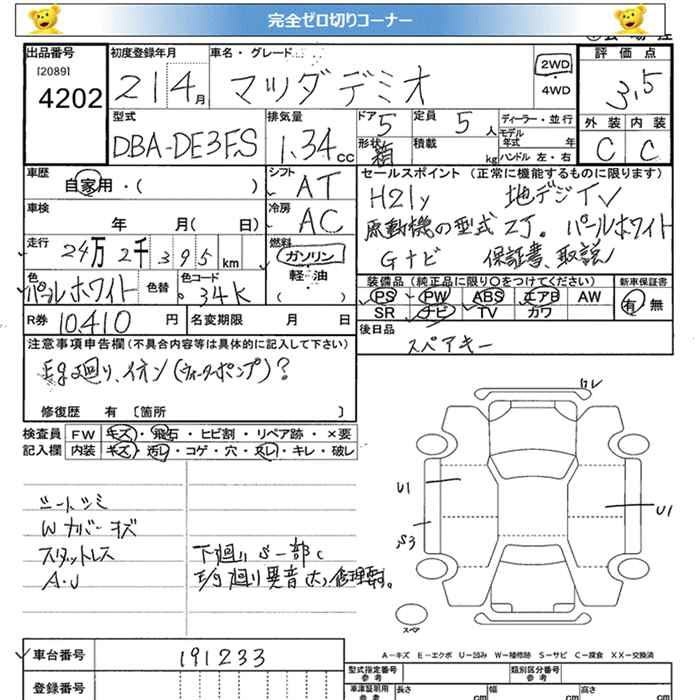 完全ゼロ切りコーナー
出品番号 初度登録年月 車名・グレード 評価点
[2089]
4202 21 4月 マツダデミオ 2WD 4WD 3.5
型式 排気量 ドア 定員 ディーラー・並行 外装 内装
DBA-DE3FS 1.34cc 5 5人 モデル年式 年 C C
形状 箱 積載 kg ハンドル 左・右
車歴 自家用・( ) シフト AT セールスポイント(正常に機能するものに限ります)
車検 年 月( 日) 冷房 AC H21y 地デジTV
原動機の型式 ZJ。 パールホワイト
走行 24万2千395km 燃料 ガソリン 軽・油 ( ) Gナビ 保証書、取説
色 パールホワイト 色替 色コード 34K 装備品(純正品に限り○をつけてください) 新車保証書
PS PW ABS エアB AW 有 無
SR ナビ TV カワ
R券 10,410円 名変期限 月 日 後日品 スペアキー
注意事項申告欄(不具合内容等は具体的に記入して下さい)
E/g廻り、イオン(ウォーターポンプ)?
修復歴 有 〔箇所 〕
検査員 FW キズ・飛石・ヒビ割・リペア跡・×要
記入欄 内装 キズ・汚レ・コゲ・穴・スレ・キレ・破レ
シートシミ
Wカバーキズ
スタットレス 下廻りS一部C
A・J E/g廻り異音大、修理要す。
U1 U1
S3
スペア
A−キズ E−エクボ U−凹み W−補修跡 S−サビ C−腐食 XX−交換済
車台番号 191233
型式指定番号 参考 類別区分番号 参考
登録番号 車検証明用 参考 長さ cm 幅 cm 高さ cm